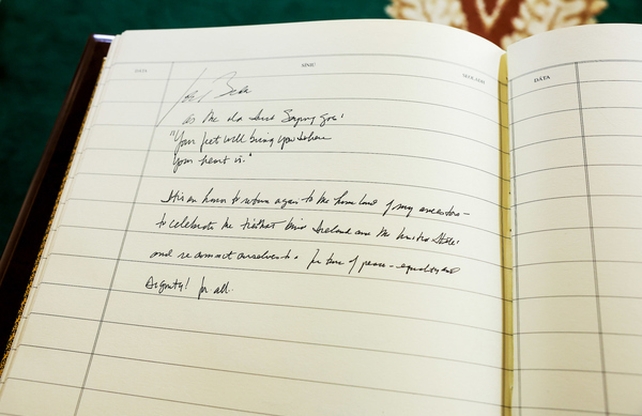 DÁTA AINIC SEOLADH DÁTA
Joe Biden
as the old Irish saying goes:
"Your feet will bring you where
your heart is."
It is an honor to return again to the home land of my ancestors –
to celebrate the ties that bind Ireland and the United States
and re commit ourselves to a future of peace – equality and
Dignity! for all.